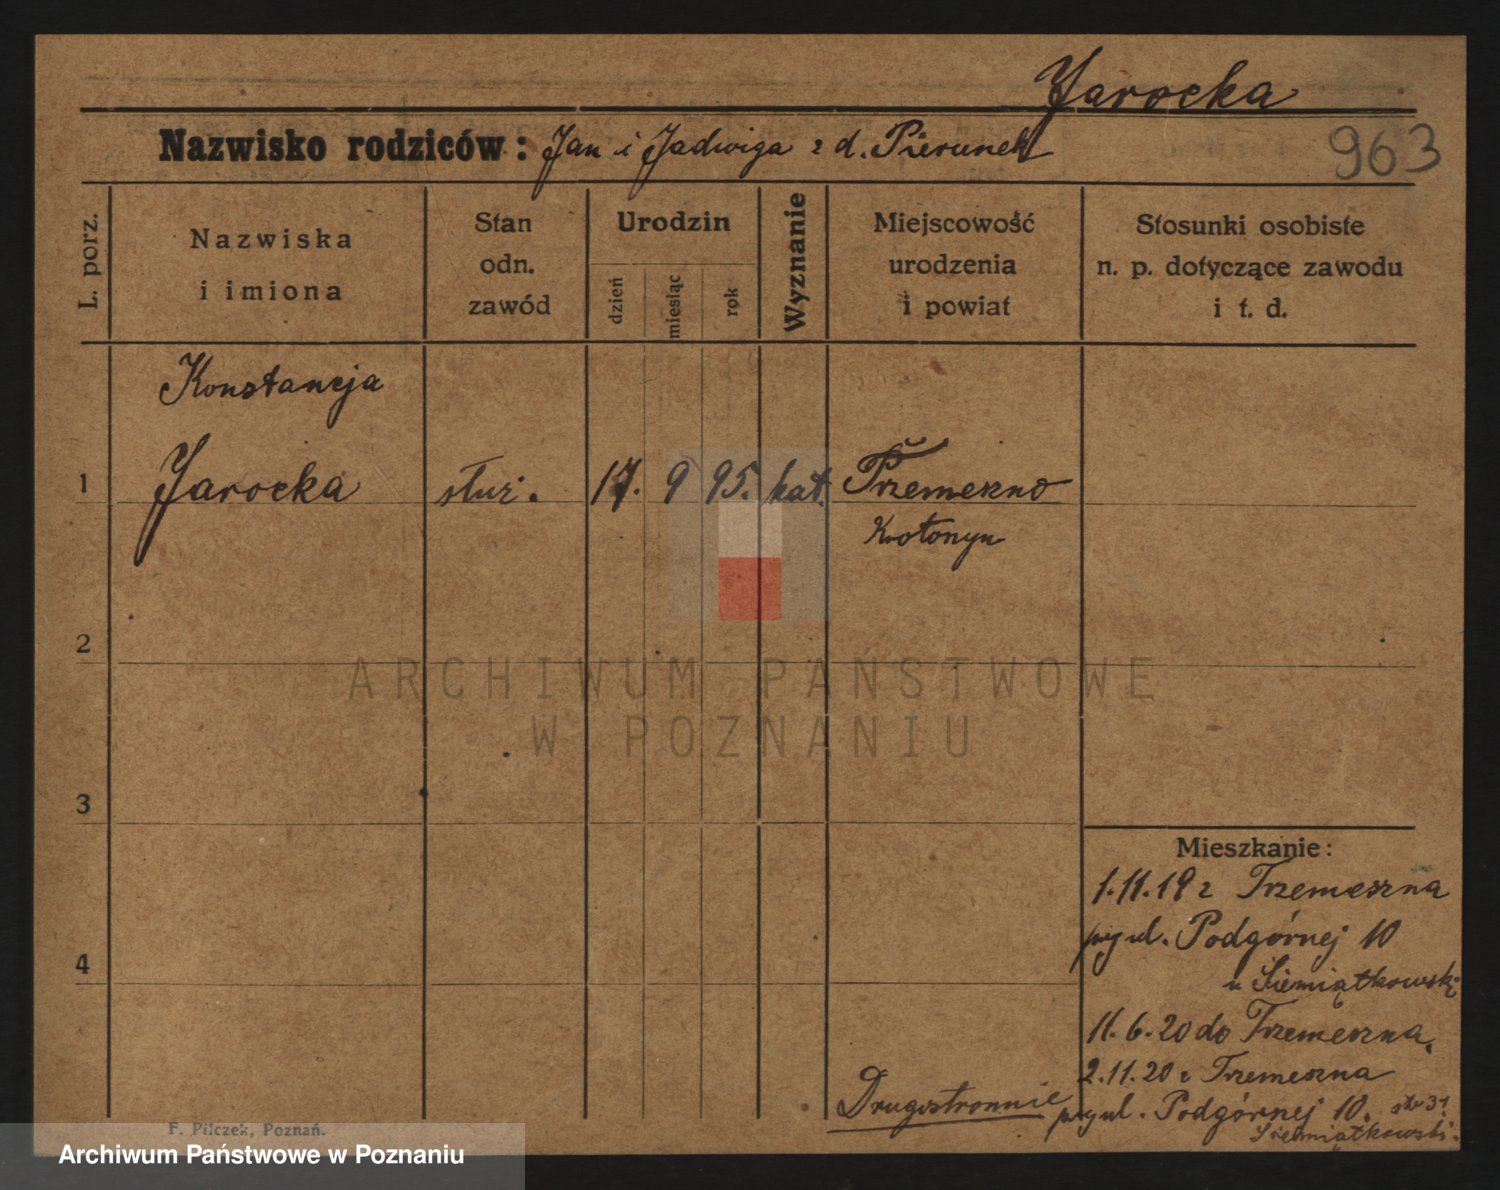 Jarocka
Nazwisko rodziców: Jan i Jadwiga z d. Pierunek
963
L. porz.
Nazwiska
i imiona
Stan
odn.
zawód
Urodzin
dzień
miesiąc
rok
Wyznanie
Miejscowość
urodzenia
i powiat
Stosunki osobiste
n. p. dotyczące zawodu
i t. d.
Konstancja
1 Jarocka służ. 17. 9 95. kat. Trzemeszno
Krotoszyn
2
3
4
ARCHIWUM PAŃSTWOWE
W POZNANIU
Mieszkanie:
1.11.19 z Trzemeszna
przy ul. Podgórnej 10
u Siemiątkowski
11.6.20 do Trzemeszna.
2.11.20 z Trzemeszna
Drugostronnie
przy ul. Podgórnej 10.
Siemiątkowski.
F. Pilczek, Poznań.
Archiwum Państwowe w Poznaniu